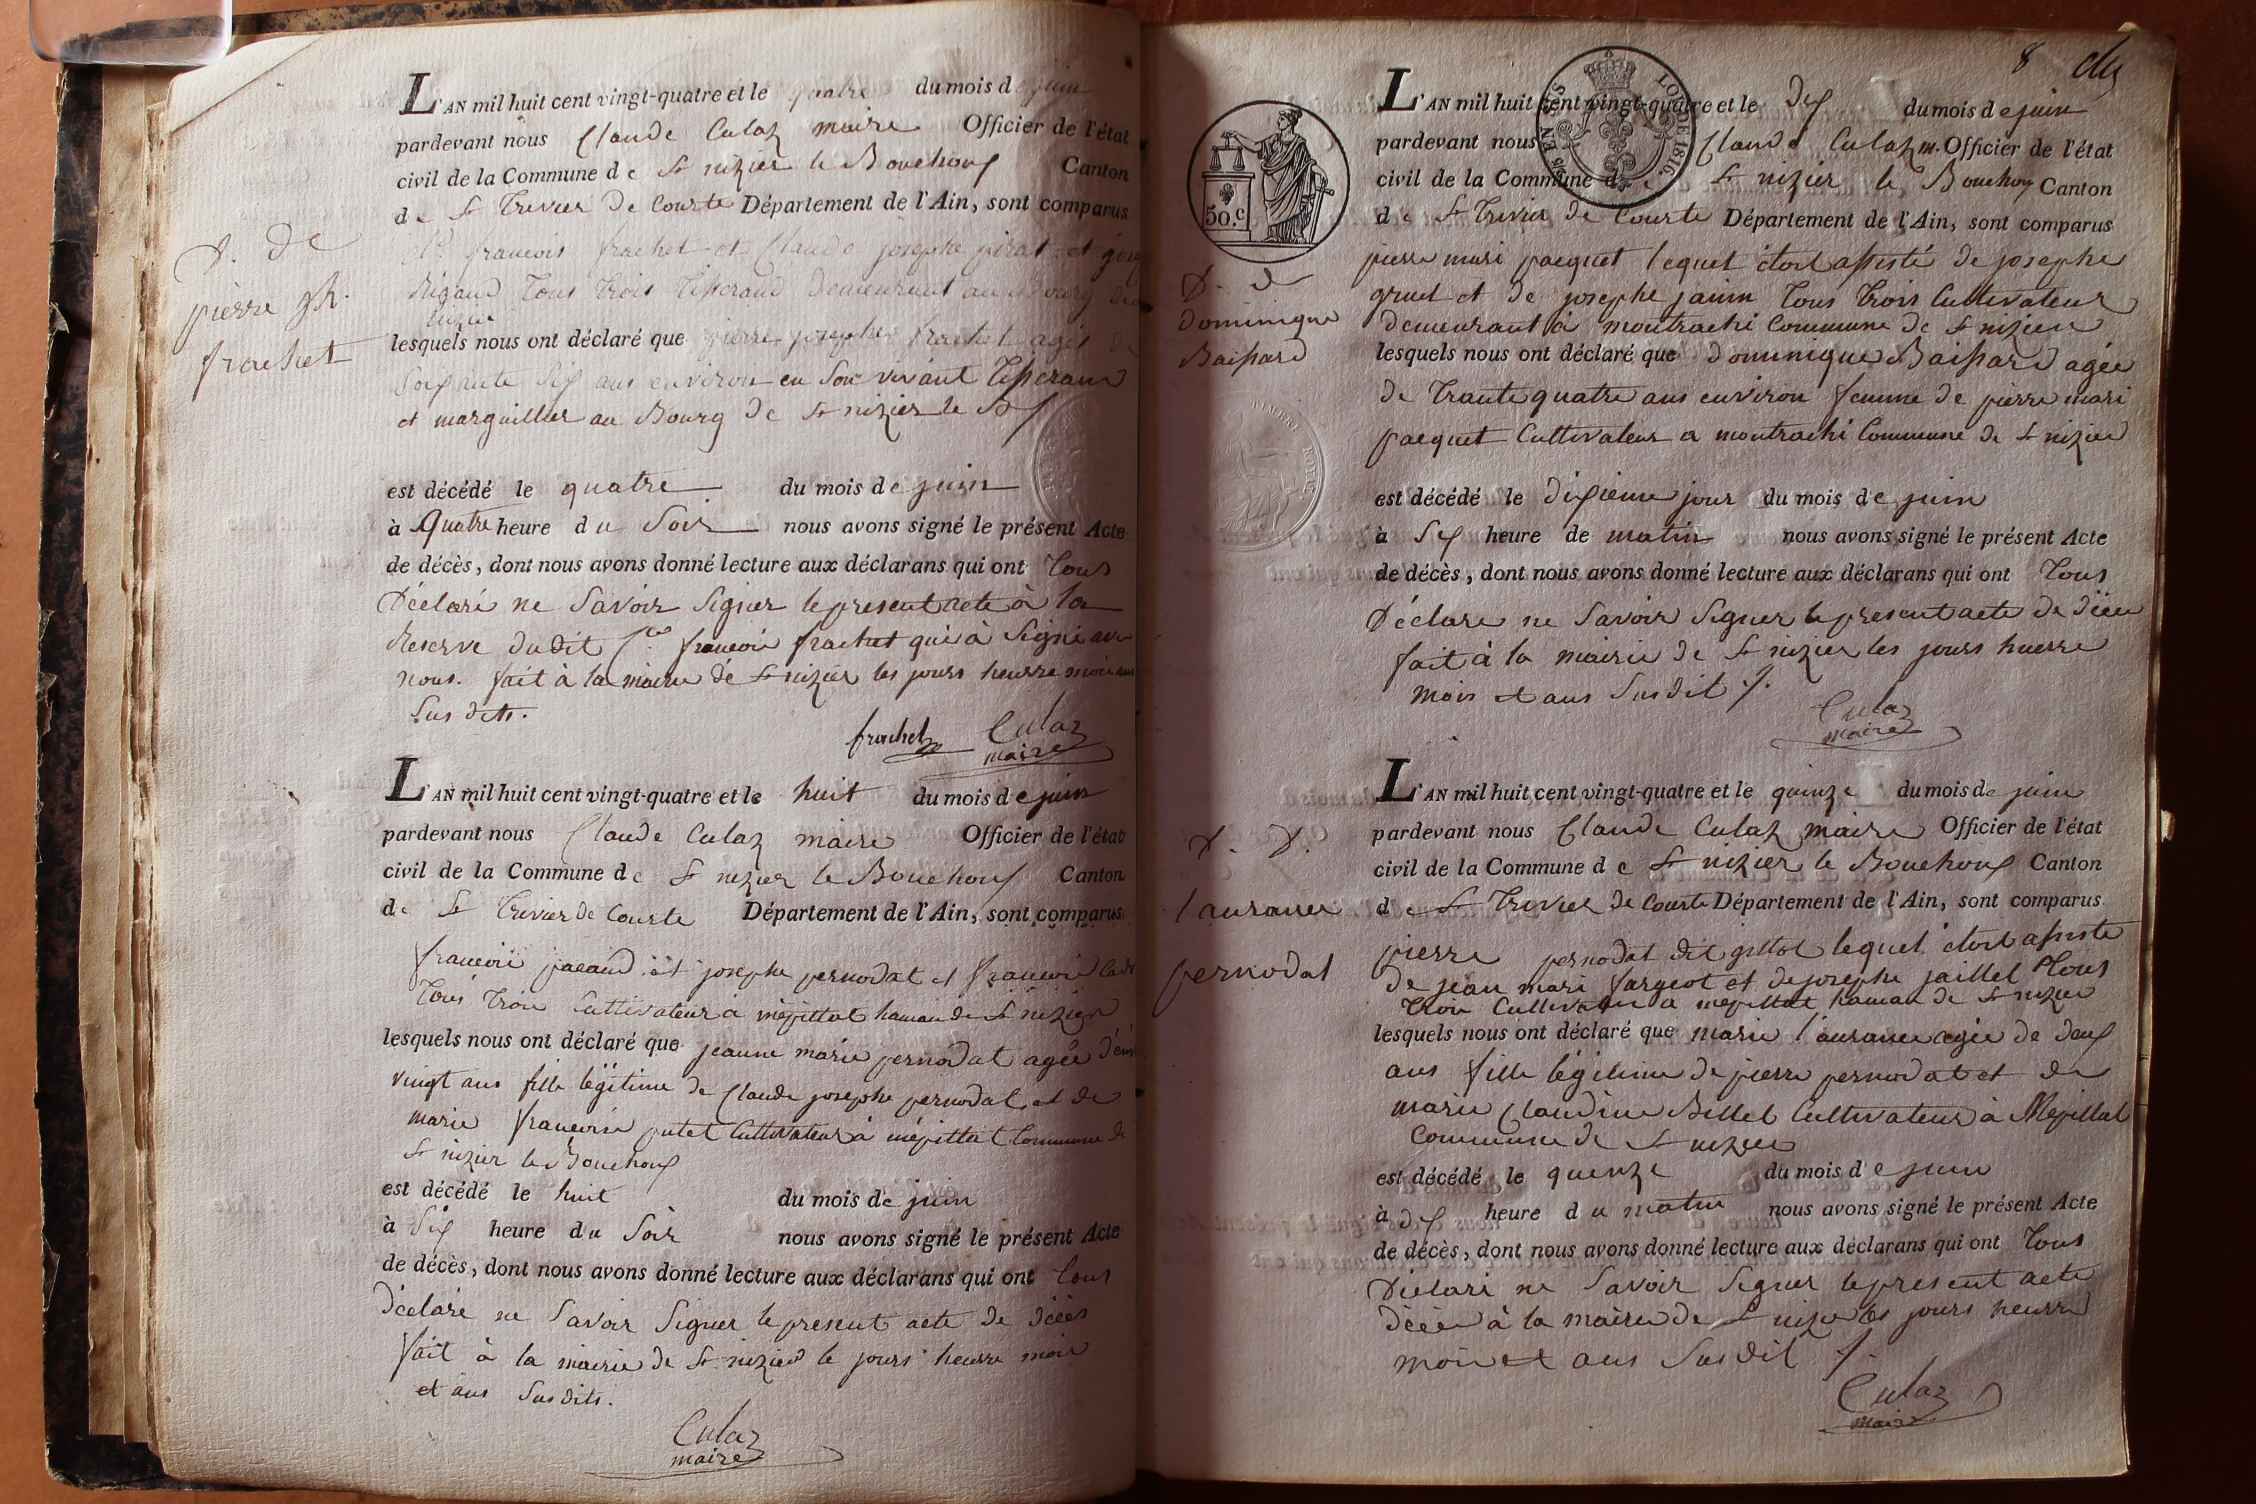 D. de
pierre jh.
frachet
L'AN mil huit cent vingt-quatre et le quatre du mois de juin
pardevant nous Claude Culaz maire Officier de l'état
civil de la Commune de St nizier le Bouchoux Canton
de St Trivier de Courte Département de l'Ain, sont comparus
françois frachet et Claude josephe pirat et
Rigaud Tous trois Tisserand demeurant au Bourg
nizier
lesquels nous ont déclaré que pierre josephe frachet agés de
Soixante Six ans environ en Son vivant Tisserand
et marguillier au Bourg de St nizier le Bx
est décédé le quatre du mois de juin
à Quatre heure du Soir nous avons signé le présent Acte
de décès, dont nous avons donné lecture aux déclarans qui ont Tous
Déclaré ne Savoir Signer le present acte à la
Reserve dudit françois frachet qui à Signé avec
nous. fait à la mairie de St nizier les jours heurre mois
Susdits.
frachet Culaz
maire
L'AN mil huit cent vingt-quatre et le huit du mois de juin
pardevant nous Claude Culaz maire Officier de l'état
civil de la Commune de St nizier le Bouchoux Canton
de St Trivier de Courte Département de l'Ain, sont comparus
françois pacaud et josephe pernodat et françois
Tous Trois Cultivateur à mépillat hamau de St nizier
lesquels nous ont déclaré que jeanne marie pernodat agée
vingt ans fille légitime de Claude josephe pernodat et de
marie françoise putet Cultivateur à mépillat Commune de
St nizier le Bouchoux
est décédé le huit du mois de juin
à Six heure du Soir nous avons signé le présent Acte
de décès, dont nous avons donné lecture aux déclarans qui ont Tous
Déclaré ne Savoir Signer le present acte de décès
fait à la mairie de St nizier le jours heurre mois
et ans Susdits.
Culaz
maire
8
50.c
LOI DE 1816.
D. de
Dominique
Baissard
L'AN mil huit cent vingt-quatre et le dix du mois de juin
pardevant nous Claude Culaz m. Officier de l'état
civil de la Commune de St nizier le Bouchoux Canton
de St Trivier de Courte Département de l'Ain, sont comparus
pierre mari pacquet lequel étoit assisté de josephe
gruel et de josephe janin Tous trois Cultivateur
demeurant à montrachi Commune de St nizier
lesquels nous ont déclaré que dominique Baissard agée
de Trante quatre ans environ femme de pierre mari
pacquet Cultivateur a montrachi Commune de St nizier
est décédé le dixieme jour du mois de juin
à Six heure de matin nous avons signé le présent Acte
de décès, dont nous avons donné lecture aux déclarans qui ont Tous
Déclare ne Savoir Signer le present acte de décès
fait à la mairie de St nizier les jours huerre
mois et ans Susdit
Culaz
maire
D. D.
laurance
pernodat
L'AN mil huit cent vingt-quatre et le quinze du mois de juin
pardevant nous Claude Culaz maire Officier de l'état
civil de la Commune de St nizier le Bouchoux Canton
de St Trivier de Courte Département de l'Ain, sont comparus
pierre pernodat dit gillot lequel étoit assisté
de jean mari fargeot et de josephe jaillet Tous
Trois Cultivateur a mépillat hamau de St nizier
lesquels nous ont déclaré que marie laurance agée de deux
ans fille légitime de pierre pernodat et de
marie Claudine Billet Cultivateur à Mépillat
Commune de St nizier
est décédé le quenze du mois de juin
à dix heure du matin nous avons signé le présent Acte
de décès, dont nous avons donné lecture aux déclarans qui ont Tous
Déclaré ne Savoir Signer le present acte
décès à la mairie de St nizier les jours heurre
mois et ans Susdit
Culaz
maire